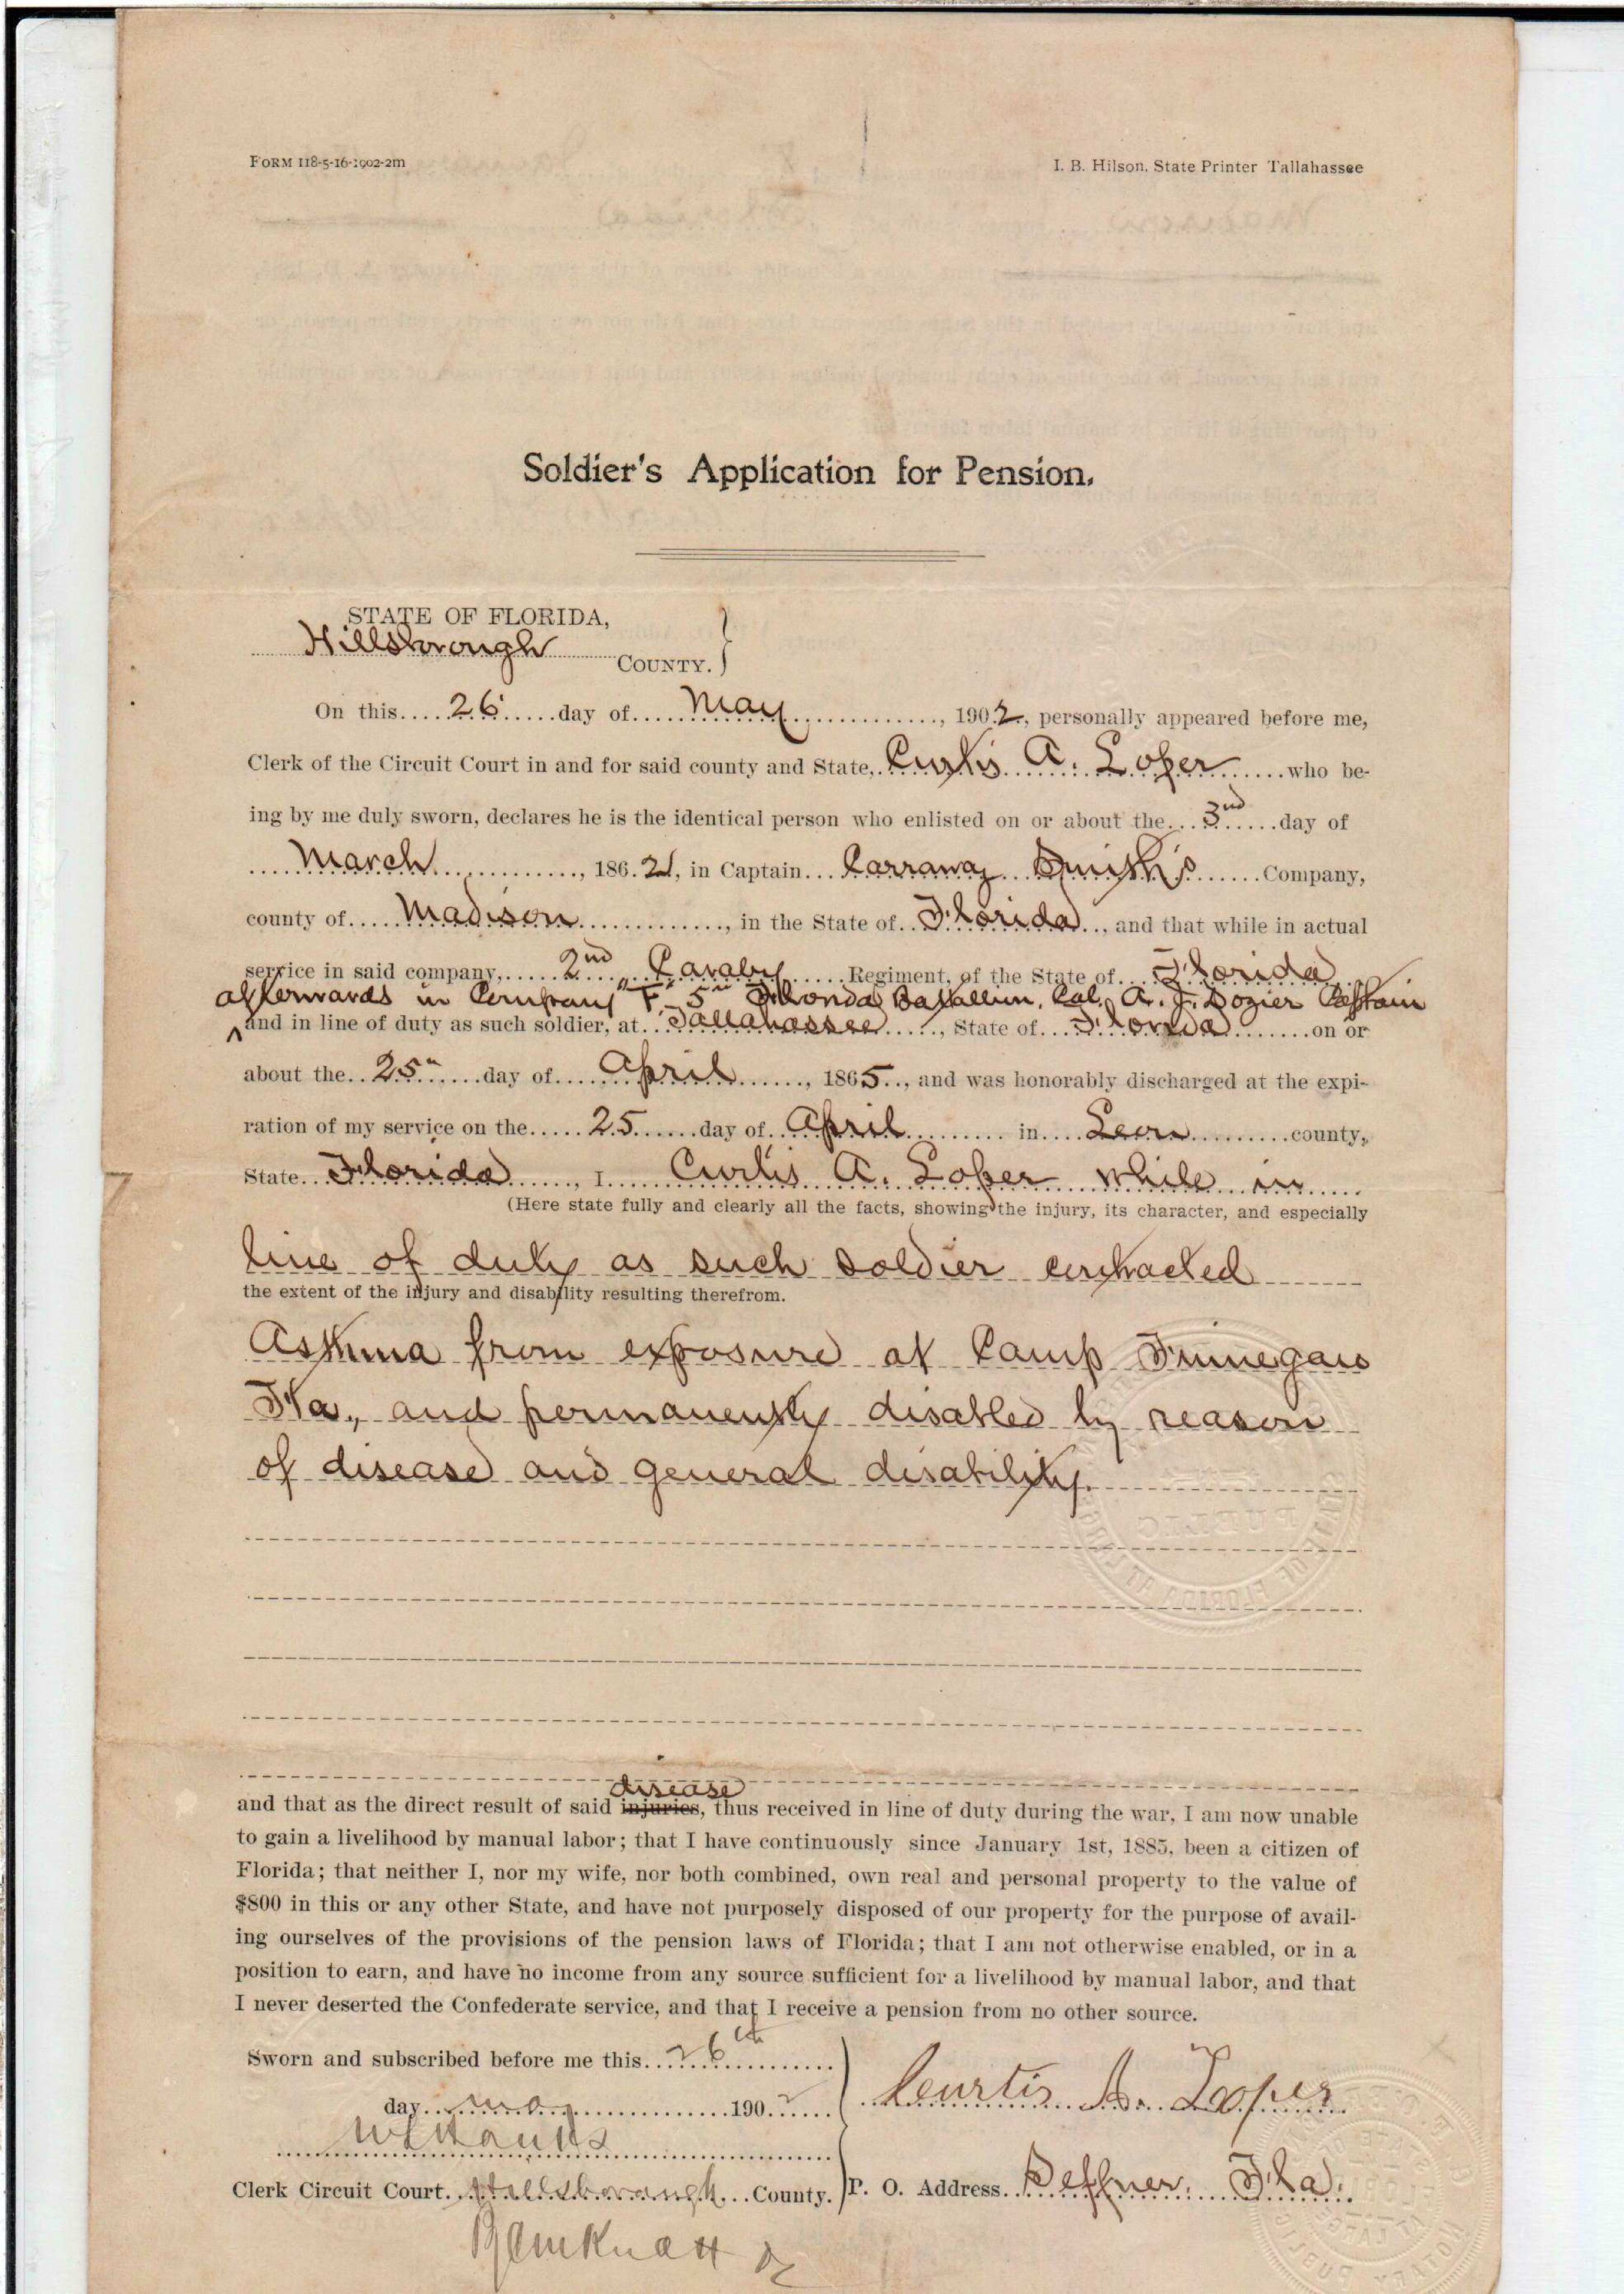 FORM 118-5-16-1902-2m
I. B. Hilson, State Printer Tallahassee
Soldier's Application for Pension.
STATE OF FLORIDA,
Hillsborough COUNTY.
On this 26 day of May, 1902, personally appeared before me,
Clerk of the Circuit Court in and for said county and State, Curtis A. Loper who be-
ing by me duly sworn, declares he is the identical person who enlisted on or about the 3nd day of
March, 1862, in Captain Carraway Smith's Company,
county of Madison, in the State of Florida, and that while in actual
service in said company, 2nd Cavalry Regiment, of the State of Florida
afterwards in Company "F" 5th Florida Battallion, Col, A. J. Dozier Captain
and in line of duty as such soldier, at Tallahassee, State of Florida on or
about the 25" day of April, 1865, and was honorably discharged at the expi-
ration of my service on the 25 day of April in Leon county,
State Florida, I Curtis A. Loper while in
(Here state fully and clearly all the facts, showing the injury, its character, and especially
line of duty as such soldier contracted
the extent of the injury and disability resulting therefrom.
Asthma from exposure at Camp Finnegan
Fla., and permanently disabled by reason
of disease and general disability.
disease
and that as the direct result of said injuries, thus received in line of duty during the war, I am now unable
to gain a livelihood by manual labor; that I have continuously since January 1st, 1885, been a citizen of
Florida; that neither I, nor my wife, nor both combined, own real and personal property to the value of
$800 in this or any other State, and have not purposely disposed of our property for the purpose of avail-
ing ourselves of the provisions of the pension laws of Florida; that I am not otherwise enabled, or in a
position to earn, and have no income from any source sufficient for a livelihood by manual labor, and that
I never deserted the Confederate service, and that I receive a pension from no other source.
Sworn and subscribed before me this 26th
day May 1902
Curtis A. Looper
Clerk Circuit Court Hillsborough County.
P. O. Address Seffner, Fla.